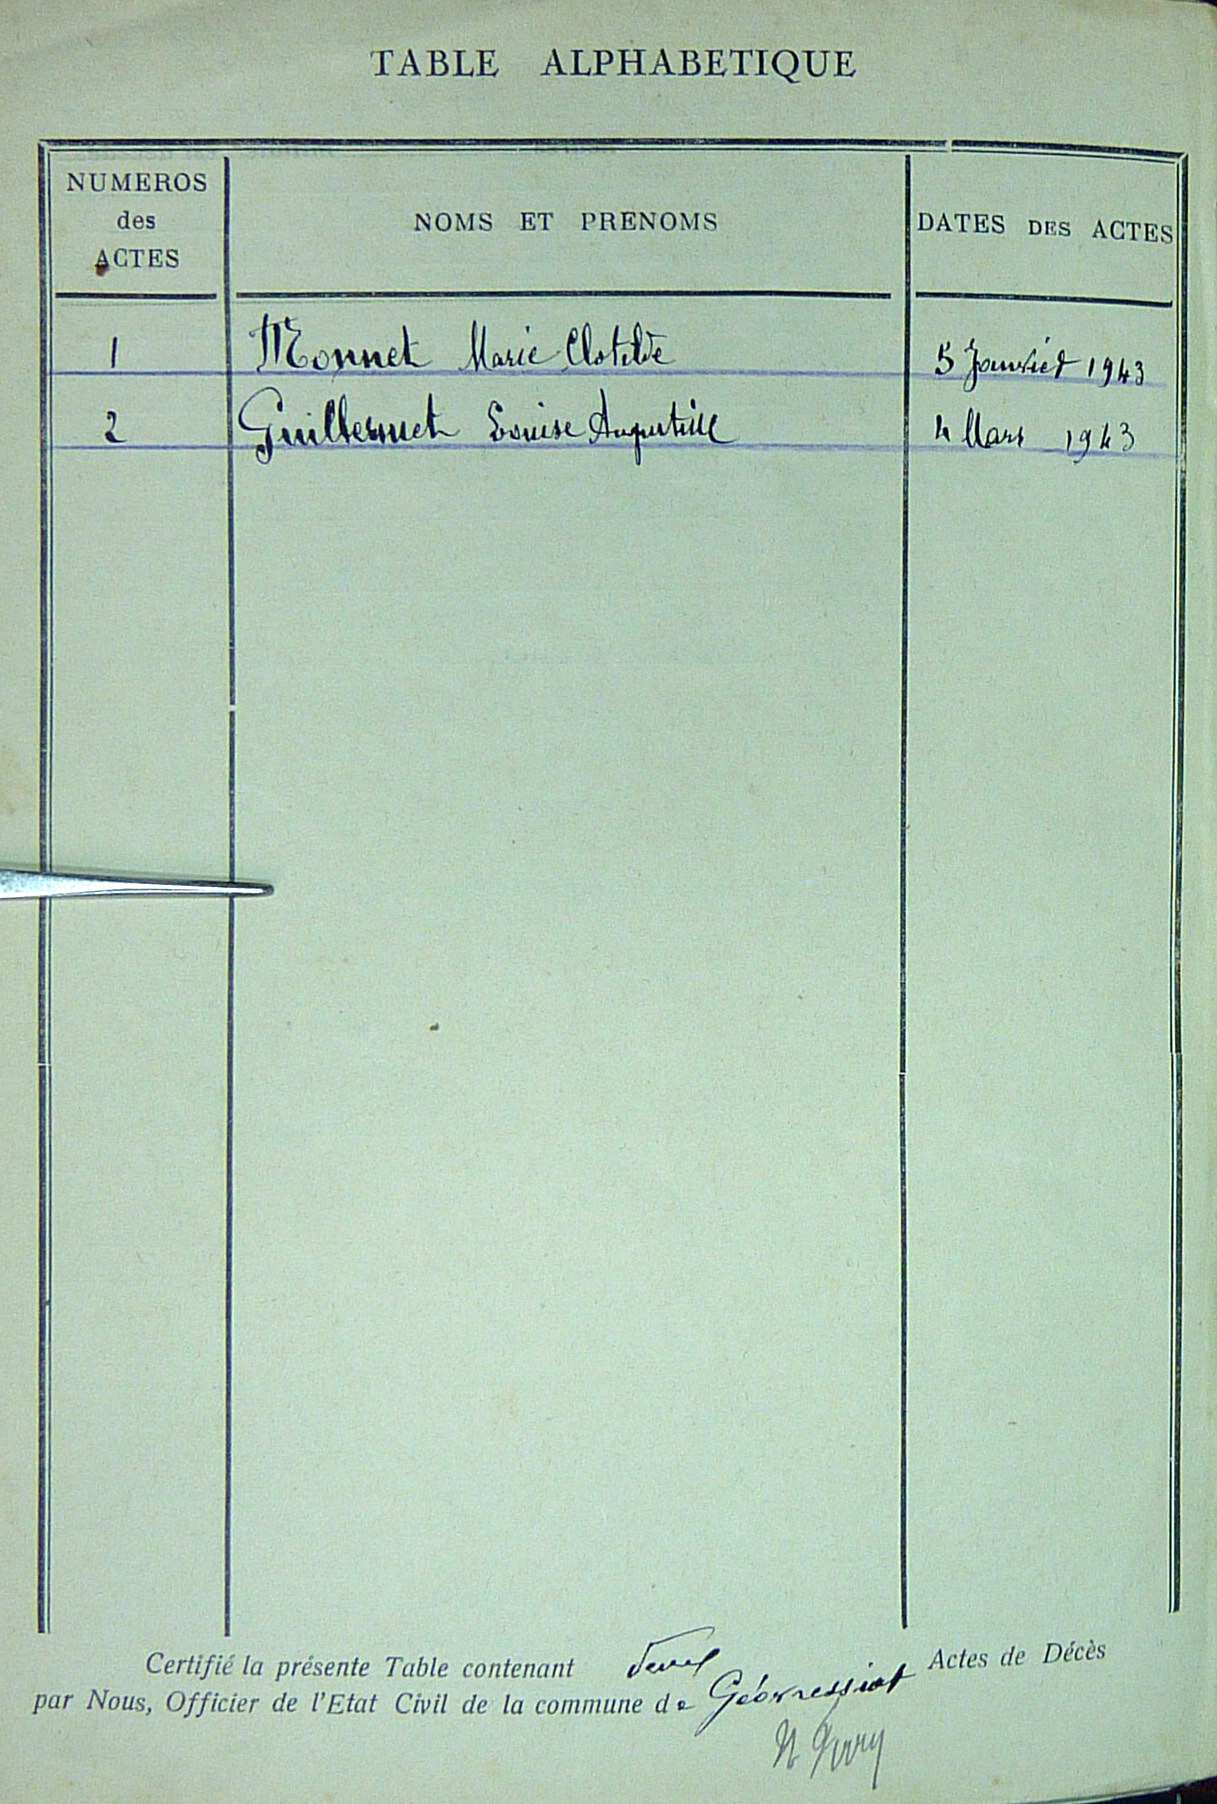 TABLE ALPHABETIQUE
NUMEROS des ACTES
NOMS ET PRENOMS
DATES DES ACTES
1 Monnet Marie Clotilde 5 Janvier 1943
2 Guillermet Louise Augustine 4 Mars 1943
Certifié la présente Table contenant deux Actes de Décès
par Nous, Officier de l'Etat Civil de la commune de Géovressiat